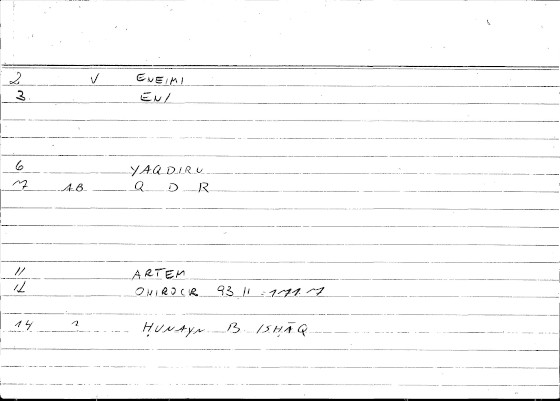 2 V ENEIMI
3 ENI
6 YAQDIRU
7 AB Q D R
11 ARTEM
12 ONIROCR 93 11
14 ḤUNAYN B ISḤĀQ